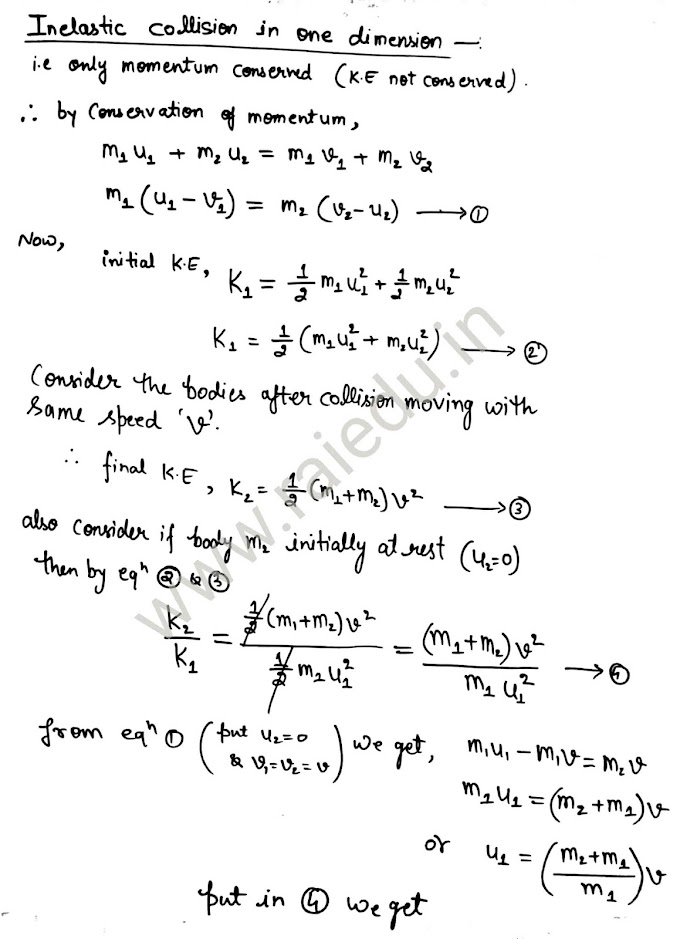 Inelastic collision in one dimension —:
i.e only momentum conserved (K.E not conserved).
∴ by conservation of momentum,
m₁u₁ + m₂u₂ = m₁v₁ + m₂v₂
m₁(u₁ − v₁) = m₂(v₂ − u₂) ⟶ ①
Now,
initial K.E, K₁ = 1/2 m₁u₁² + 1/2 m₂u₂²
K₁ = 1/2 (m₁u₁² + m₂u₂²) ⟶ ②
Consider the bodies after collision moving with
same speed 'v'.
∴ final K.E, K₂ = 1/2 (m₁+m₂)v² ⟶ ③
also consider if body m₂ initially at rest (u₂=0)
then by eqⁿ ② & ③
K₂/K₁ = 1/2 (m₁+m₂)v² / 1/2 m₁u₁² = (m₁+m₂)v² / m₁u₁² ⟶ ④
from eqⁿ ① (put u₂=0 & v₁=v₂=v) we get, m₁u₁ − m₁v = m₂v
m₁u₁ = (m₂+m₁)v
or u₁ = (m₂+m₁ / m₁)v
put in ④ we get
www.raiedu.in